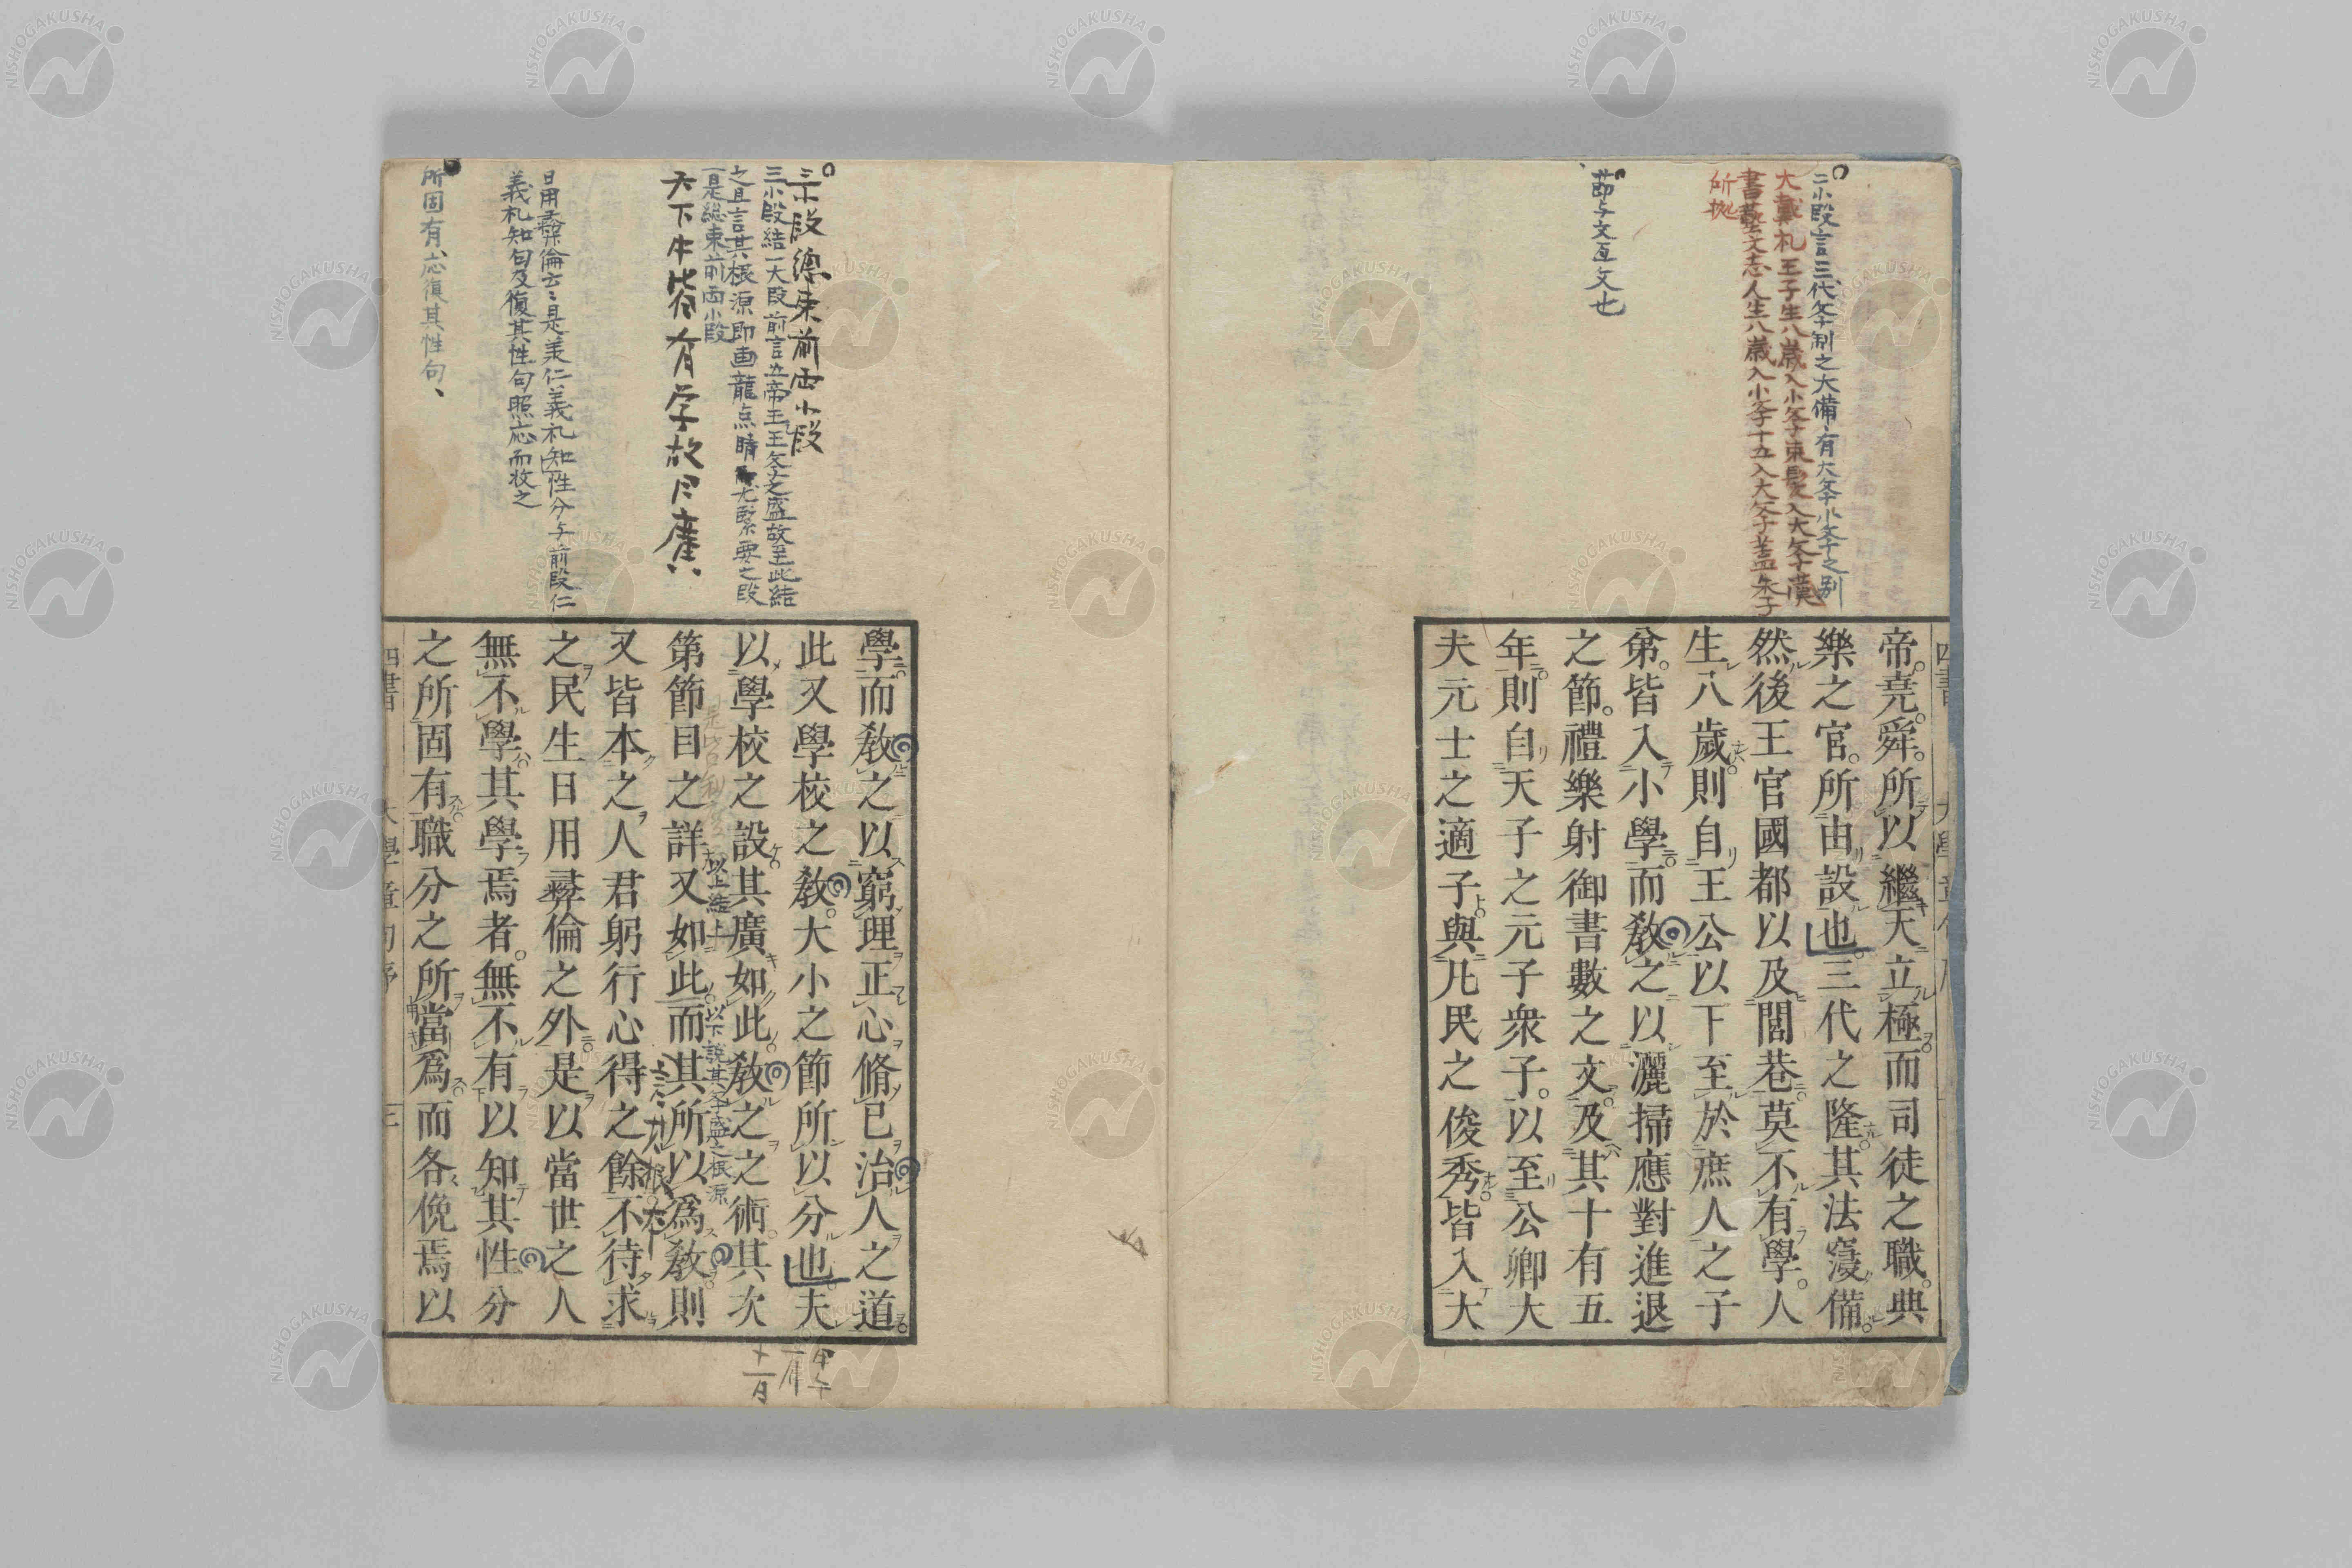 二小段言三代斈制之大備有大斈小斈之别
大戴礼王子生八歳入小斈束髪入大斈漢
書藝文志人生八歳入小斈十五入大斈蓋朱子
所拠
節与文互文也
帝堯舜所以繼天立極而司徒之職典
樂之官所由設也三代之隆其法寖備
然後王宮國都以及閭巷莫不有學人
生八歲則自王公以下至於庶人之子
弟皆入小學而敎之以灑掃應對進退
之節禮樂射御書數之文及其十有五
年則自天子之元子衆子以至公卿大
夫元士之適子與凡民之俊秀皆入大
三小段總束前両小段
三小段結一大段前言五帝三王斈之盛故至此結
之且言其根源即画龍点睛尤緊要之段
是総束前両小段
天下生皆有学故曰廣
日用彝倫云々是美仁義礼知性分与前段仁
義礼知句及復其性句照応而收之
所固有応復其性句
學而敎之以窮理正心脩己治人之道
此又學校之敎大小之節所以分也夫
以學校之設其廣如此敎之之術其次
第節目之詳又如此而其所以爲敎則
以上結上
以下說其斈盛之根源
又皆本之人君躬行心得之餘不待求
之民生日用彝倫之外是以當世之人
無不學其學焉者無不有以知其性分
之所固有職分之所當爲而各俛焉以
四書
大學章句序
三
十一月
NISHOGAKUSHA